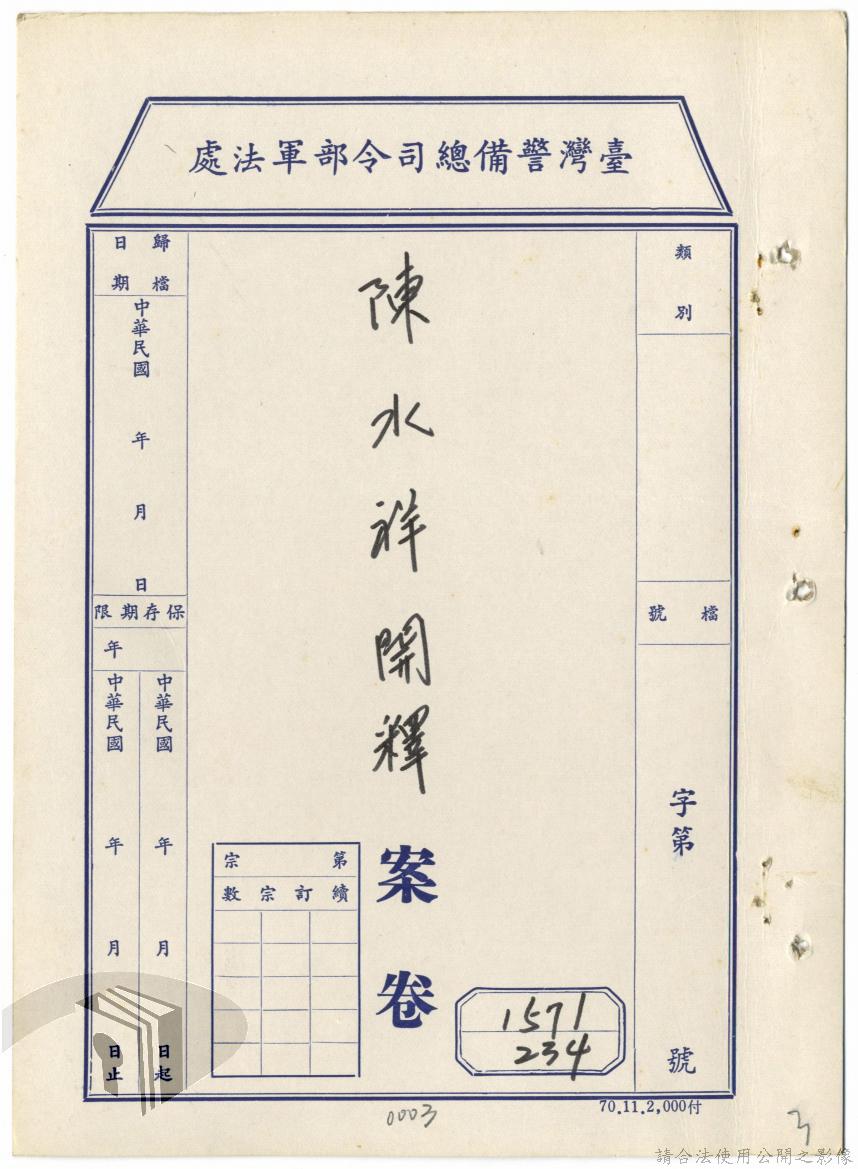 臺灣警備總司令部軍法處
類別
檔號
字第
號
陳水祥開釋
案卷
1571
234
第宗
續訂宗數
歸檔日期
中華民國 年 月 日
保存期限
年
中華民國 年 月 日起
中華民國 年 月 日止
70.11.2,000付
0003
3
請合法使用公開之影像